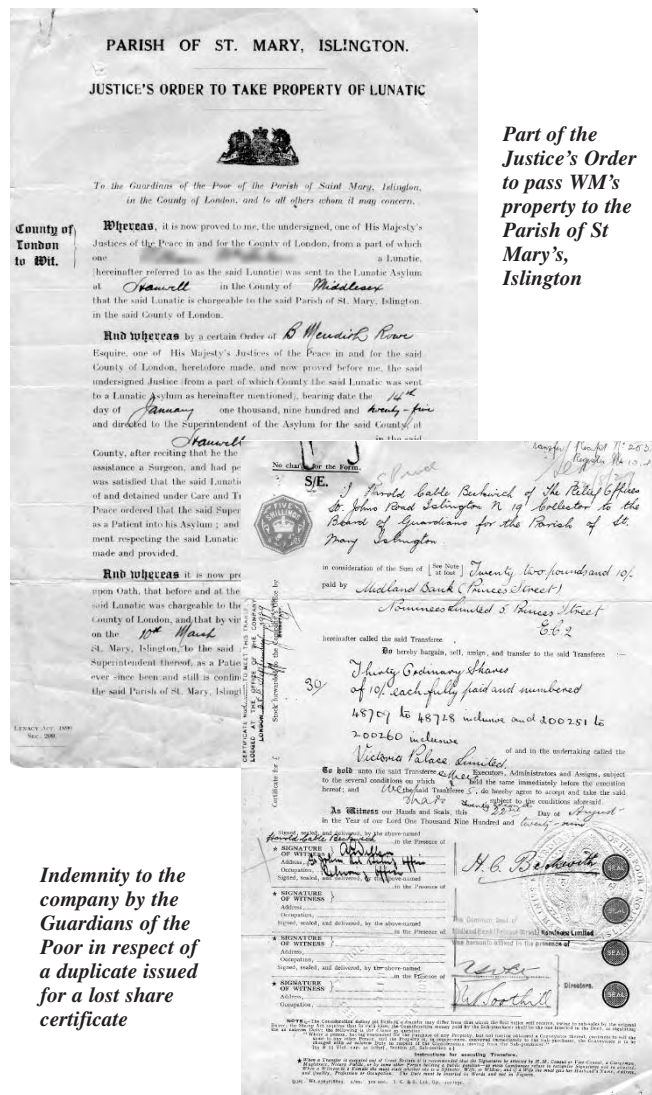 PARISH OF ST. MARY, ISLINGTON.
JUSTICE'S ORDER TO TAKE PROPERTY OF LUNATIC
To the Guardians of the Poor of the Parish of Saint Mary, Islington,
in the County of London, and to all others whom it may concern.
County of
London
to Wit.
Whereas, it is now proved to me, the undersigned, one of His Majesty's
Justices of the Peace in and for the County of London, from a part of which
one a Lunatic,
(hereinafter referred to as the said Lunatic) was sent to the Lunatic Asylum
at Hanwell in the County of Middlesex
that the said Lunatic is chargeable to the said Parish of St. Mary, Islington,
in the said County of London.
And whereas by a certain Order of B Rowe
Esquire, one of His Majesty's Justices of the Peace in and for the said
County of London, heretofore made, and now proved before me, the said
undersigned Justice (from a part of which County the said Lunatic was sent
to a Lunatic Asylum as hereinafter mentioned), bearing date the 14th
day of January one thousand, nine hundred and twenty-five
and directed to the Superintendent of the Asylum for the said County, at
Hanwell in the said
County, after reciting that he the
assistance a Surgeon, and had pe
was satisfied that the said Lunati
of and detained under Care and Tr
Peace ordered that the said Super
as a Patient into his Asylum ; and
ment respecting the said Lunatic
made and provided.
And whereas it is now pro
upon Oath, that before and at the
said Lunatic was chargeable to the
County of London, and that by vir
on the 10th March
St. Mary, Islington, to the said
Superintendent thereof, as a Patie
ever since been and still is confin
the said Parish of St. Mary, Islingt
LUNACY ACT 1890
SEC. 299.
Part of the
Justice's Order
to pass WM's
property to the
Parish of St
Mary's,
Islington
No charge for the Form.
S/E.
I Harold Cable Beckwith of The Relief Offices
St. Johns Road Islington N 19 Collector to the
Board of Guardians for the Parish of St.
Mary Islington
in consideration of the Sum of [See Note at foot] Twenty two pounds and 10/-
paid by Midland Bank (Princes Street)
Nominees Limited 5 Princes Street
EC2
hereinafter called the said Transferee
Do hereby bargain, sell, assign, and transfer to the said Transferee :—
30/
Thirty Ordinary Shares
of 10/- each fully paid and numbered
48709 to 48728 inclusive and 200251 to
200260 inclusive
of and in the undertaking called the
Victoria Palace Limited.
To hold unto the said Transferee Executors, Administrators and Assigns, subject
to the several conditions on which held the same immediately before the execution
hereof; and We the said Transferee s, do hereby agree to accept and take the said
Shares subject to the conditions aforesaid.
As Witness our Hands and Seals, this Day of August
in the Year of our Lord One Thousand Nine Hundred and twenty-nine
Signed, sealed, and delivered, by the above-named
Harold Cable Beckwith in the Presence of
SIGNATURE
OF WITNESS
Address
Occupation
H. C. Beckwith
SEAL
Signed, sealed, and delivered, by the above-named
in the Presence of
SIGNATURE
OF WITNESS
Address
Occupation
SEAL
Signed, sealed, and delivered, by the above-named
in the Presence of
SIGNATURE
OF WITNESS
Address
Occupation
The Common Seal of
Midland Bank (Princes Street) Nominees Limited
was hereunto affixed in the presence of
SEAL
Signed, sealed, and delivered, by the above-named
in the Presence of
SIGNATURE
OF WITNESS
Address
Occupation
Directors.
SEAL
Instructions for executing Transfer.
Indemnity to the
company by the
Guardians of the
Poor in respect of
a duplicate issued
for a lost share
certificate